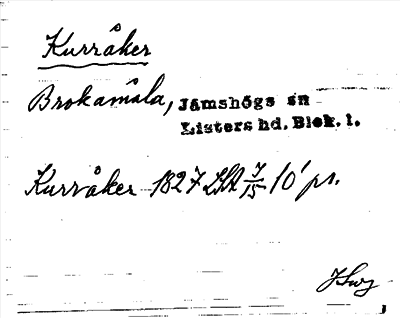 Kurråker
Brokamåla, Jämshögs sn
Listers hd. Blek. l.
Kurråker 1827 LSA 7/15 10' pr.